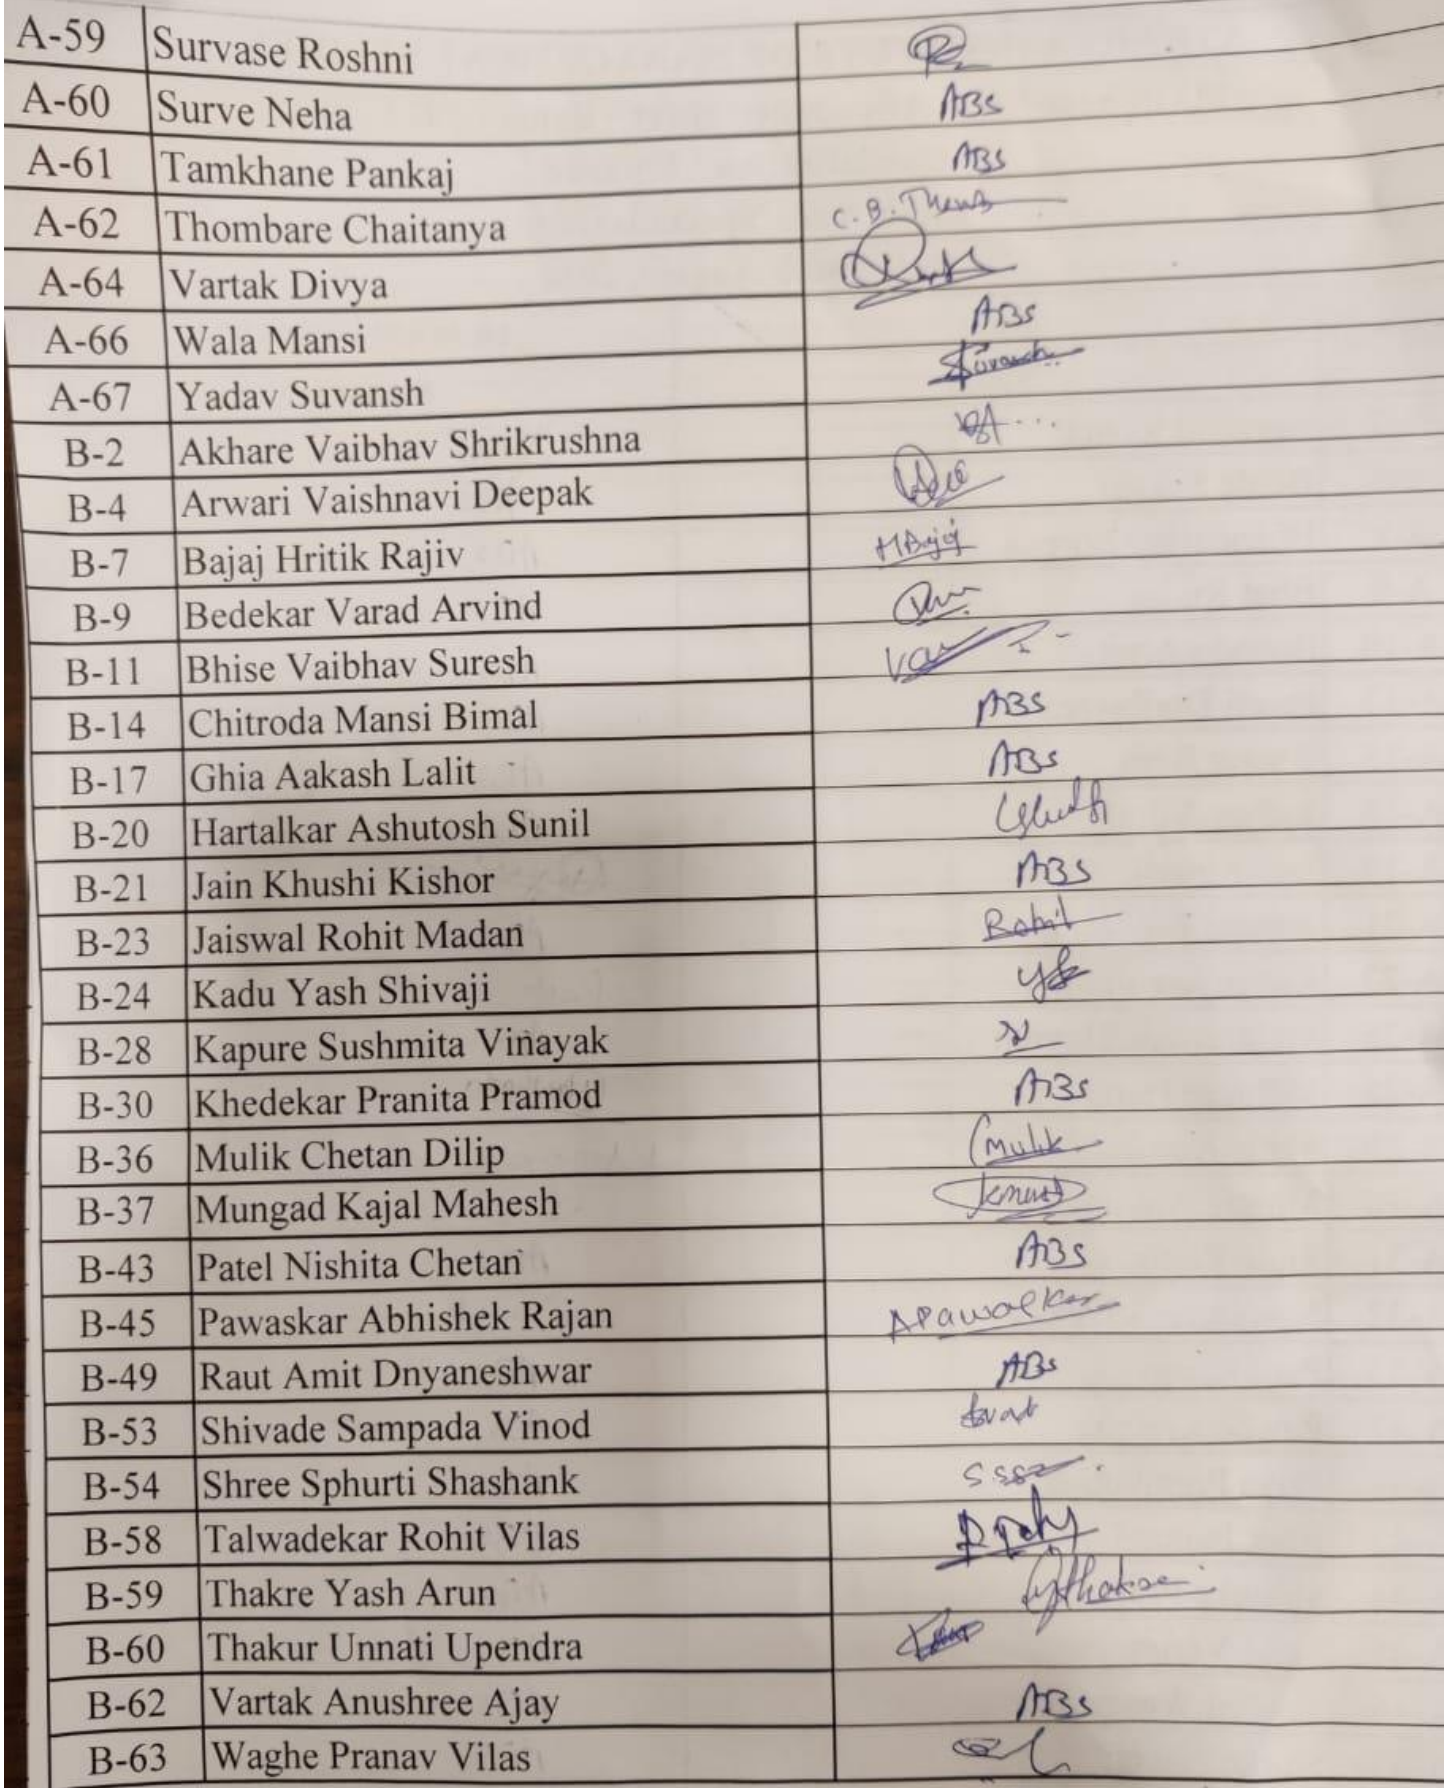 A-59 Survase Roshni
A-60 Surve Neha ABS
A-61 Tamkhane Pankaj ABS
A-62 Thombare Chaitanya C. B.
A-64 Vartak Divya
A-66 Wala Mansi ABS
A-67 Yadav Suvansh Suvansh
B-2 Akhare Vaibhav Shrikrushna
B-4 Arwari Vaishnavi Deepak
B-7 Bajaj Hritik Rajiv HBajaj
B-9 Bedekar Varad Arvind
B-11 Bhise Vaibhav Suresh
B-14 Chitroda Mansi Bimal ABS
B-17 Ghia Aakash Lalit ABS
B-20 Hartalkar Ashutosh Sunil
B-21 Jain Khushi Kishor ABS
B-23 Jaiswal Rohit Madan Rohit
B-24 Kadu Yash Shivaji
B-28 Kapure Sushmita Vinayak
B-30 Khedekar Pranita Pramod ABS
B-36 Mulik Chetan Dilip CMulik
B-37 Mungad Kajal Mahesh
B-43 Patel Nishita Chetan ABS
B-45 Pawaskar Abhishek Rajan
B-49 Raut Amit Dnyaneshwar ABS
B-53 Shivade Sampada Vinod
B-54 Shree Sphurti Shashank
B-58 Talwadekar Rohit Vilas
B-59 Thakre Yash Arun
B-60 Thakur Unnati Upendra
B-62 Vartak Anushree Ajay ABS
B-63 Waghe Pranav Vilas